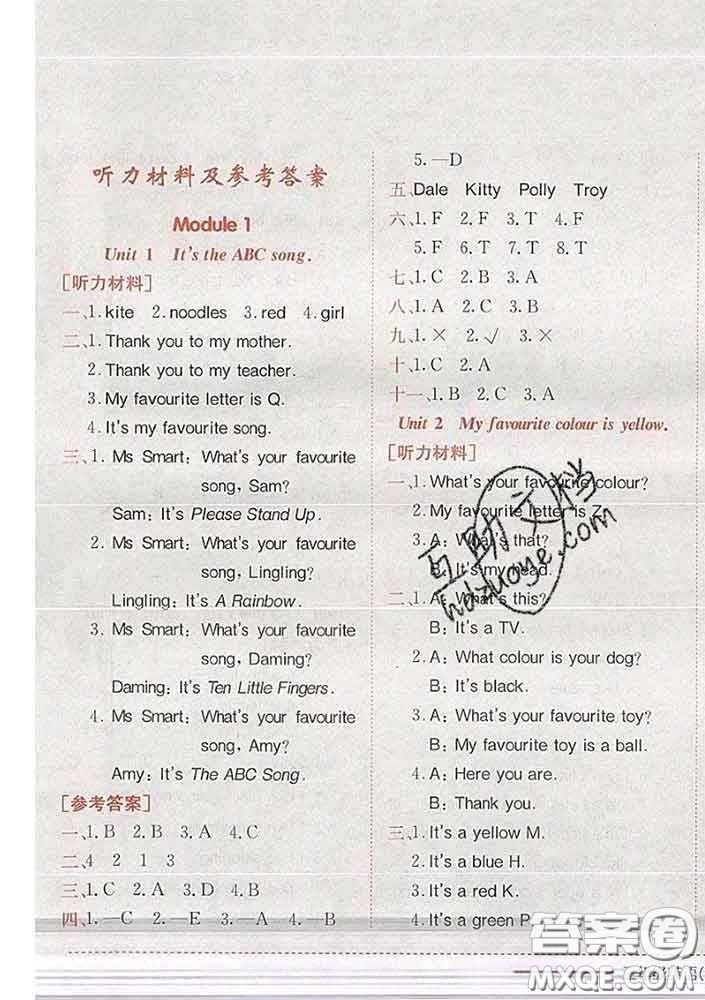 听力材料及参考答案
Module 1
Unit 1 It's the ABC song.
[听力材料]
一、1. kite 2. noodles 3. red 4. girl
二、1. Thank you to my mother.
2. Thank you to my teacher.
3. My favourite letter is Q.
4. It's my favourite song.
三、1. Ms Smart: What's your favourite
song, Sam?
Sam: It's Please Stand Up.
2. Ms Smart: What's your favourite
song, Lingling?
Lingling: It's A Rainbow.
3. Ms Smart: What's your favourite
song, Daming?
Daming: It's Ten Little Fingers.
4. Ms Smart: What's your favourite
song, Amy?
Amy: It's The ABC Song.
[参考答案]
一、1. B 2. B 3. A 4. C
二、4 2 1 3
三、1. C 2. A 3. D 4. B
四、1. —C 2. —E 3. —A 4. —B
5. —D
五、Dale Kitty Polly Troy
六、1. F 2. F 3. T 4. F
5. F 6. T 7. T 8. T
七、1. C 2. B 3. A
八、1. A 2. C 3. B
九、1. × 2. √ 3. ×
十、1. C 2. A
十一、1. B 2. C 3. A
Unit 2 My favourite colour is yellow.
[听力材料]
一、1. What's your favourite colour?
2. My favourite letter is Z.
3. A: What's that?
B: It's my head.
二、1. A: What's this?
B: It's a TV.
2. A: What colour is your dog?
B: It's black.
3. A: What's your favourite toy?
B: My favourite toy is a ball.
4. A: Here you are.
B: Thank you.
三、1. It's a yellow M.
2. It's a blue H.
3. It's a red K.
4. It's a green P.
互助文档
hdzuoye.com
答案圈
MXQE.COM